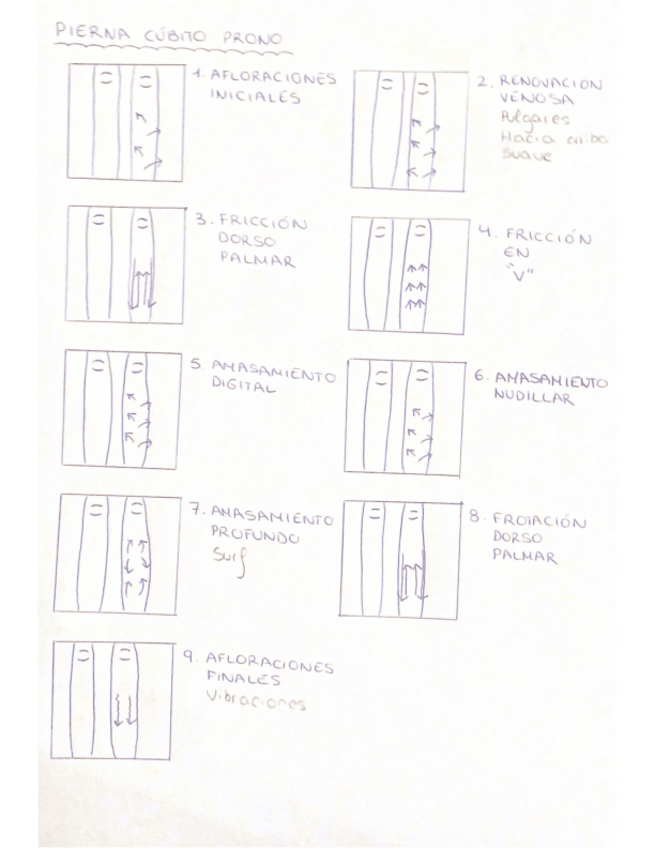 PIERNA CÚBITO PRONO
1. AFLORACIONES
INICIALES
2. RENOVACIÓN
VENOSA
Pulgares
Hacia arriba
Suave
3. FRICCIÓN
DORSO
PALMAR
4. FRICCIÓN
EN
"V"
5. AMASAMIENTO
DIGITAL
6. AMASAMIENTO
NUDILLAR
7. AMASAMIENTO
PROFUNDO
Surf
8. FROTACIÓN
DORSO
PALMAR
9. AFLORACIONES
FINALES
Vibraciones